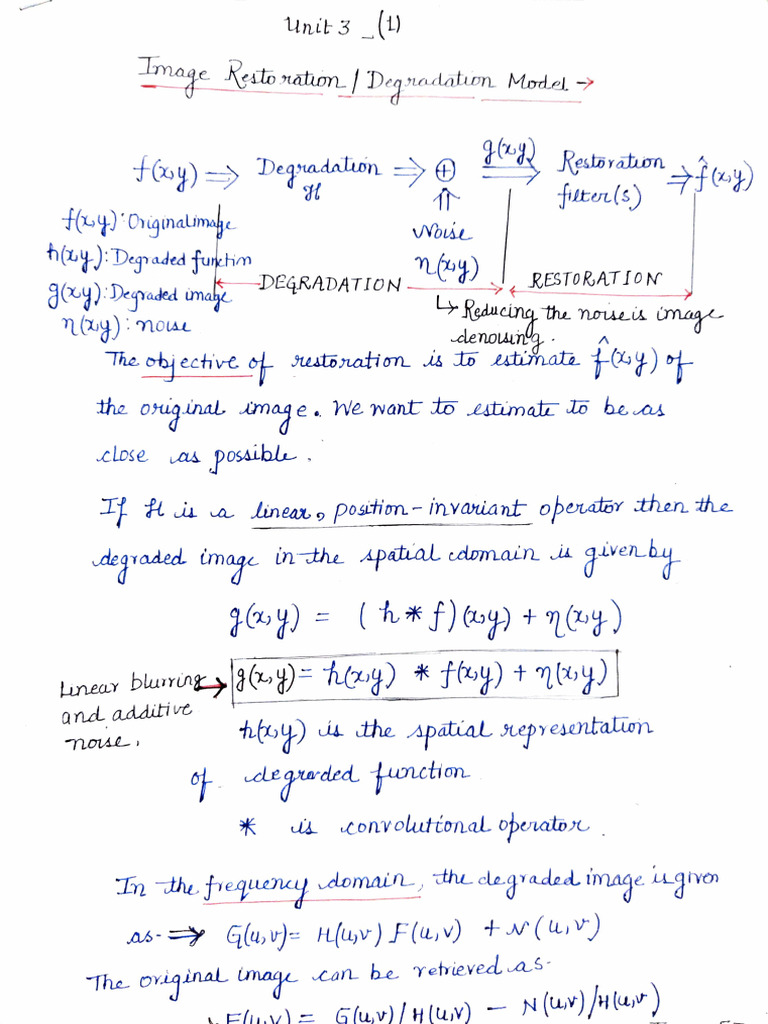 Unit 3 _ (1)
Image Restoration / Degradation Model →
f(x,y) ⇒ Degradation H ⇒ ⊕ g(x,y) ⇒ Restoration filter(s) ⇒ f̂(x,y)
⇑
Noise
η(x,y)
f(x,y): Original image
h(x,y): Degraded function
g(x,y): Degraded image
η(x,y): noise
DEGRADATION
RESTORATION
↳ Reducing the noise is image
denoising.
The objective of restoration is to estimate f̂(x,y) of
the original image. We want to estimate to be as
close as possible.
If H is a linear, position-invariant operator then the
degraded image in the spatial domain is given by
g(x,y) = (h * f)(x,y) + η(x,y)
Linear blurring → g(x,y) = h(x,y) * f(x,y) + η(x,y)
and additive
noise.
h(x,y) is the spatial representation
of degraded function
* is convolutional operator.
In the frequency domain, the degraded image is given
as ⇒ G(u,v) = H(u,v) F(u,v) + N(u,v)
The original image can be retrieved as
F(u,v) = G(u,v)/H(u,v) − N(u,v)/H(u,v)